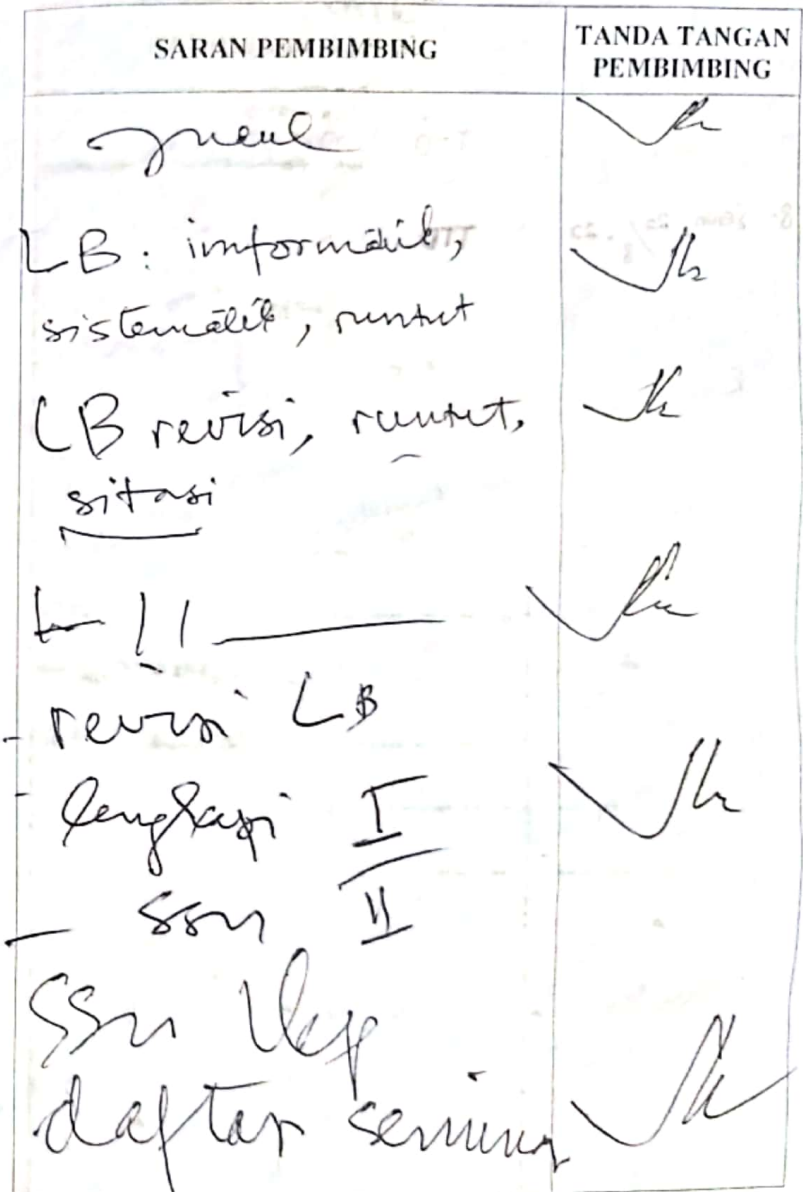 SARAN PEMBIMBING
TANDA TANGAN
PEMBIMBING
LB : imformatif,
sistematik, runtut
LB revisi, runtut,
sitasi
- revisi LB
- lengkapi I
- ssn II
ssn
daftar seminar